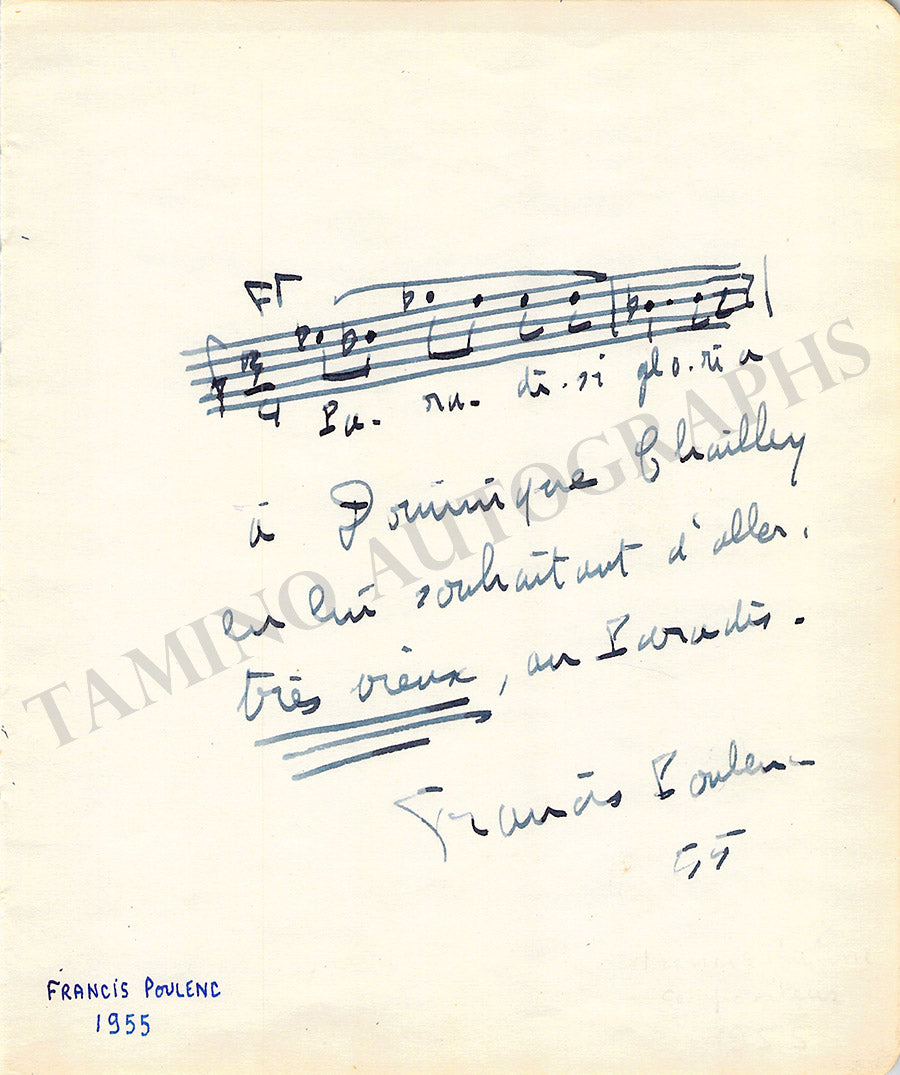 FF
4
Pa- ra- di- si glo- ri a
à Dominique Chailley
en lui souhaitant d'aller,
très vieux, au Paradis.
Francis Poulenc
55
FRANCIS POULENC
1955
TAMINO AUTOGRAPHS